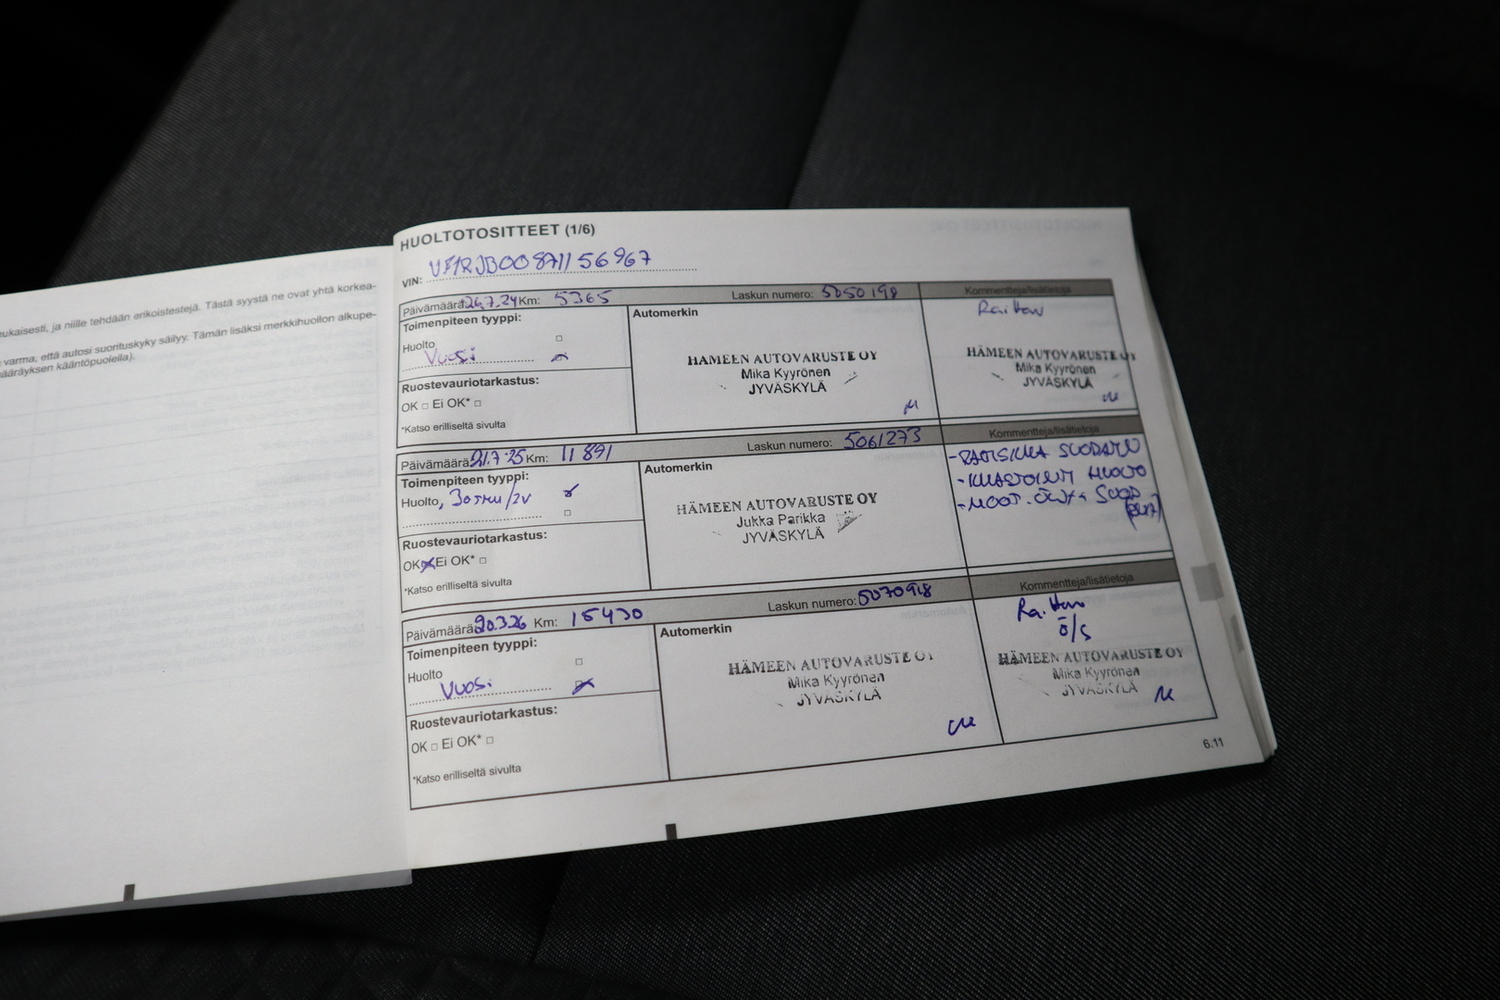 eukaisesti, ja niille tehdään erikoistestejä. Tästä syystä ne ovat yhtä korkea-
varma, että autosi suorituskyky säilyy. Tämän lisäksi merkkihuollon alkupe-
määräyksen kääntöpuolella).
HUOLTOTOSITTEET (1/6)
VIN: VF1RJB00871156967
Päivämäärä: 26.7.24 Km: 5365 Laskun numero: 5050198 Kommentteja/lisätietoja
Toimenpiteen tyyppi: Automerkin
Huolto
Vuosi
HÄMEEN AUTOVARUSTE OY
Mika Kyyrönen
JYVÄSKYLÄ
Raitten
HÄMEEN AUTOVARUSTE OY
Mika Kyyrönen
JYVÄSKYLÄ
Ruostevauriotarkastus:
OK □ Ei OK* □
*Katso erilliseltä sivulta
Päivämäärä: 21.7.25 Km: 11891 Laskun numero: 5061273 Kommentteja/lisätietoja
Toimenpiteen tyyppi: Automerkin
Huolto, 30TKM/2V
HÄMEEN AUTOVARUSTE OY
Jukka Parikka
JYVÄSKYLÄ
-RAITISILMA SUODATIN
-ILMASTOINTI HUOLTO
-MOOT. ÖLJY + SUOD
Ruostevauriotarkastus:
OK x Ei OK* □
*Katso erilliseltä sivulta
Päivämäärä: 20.3.26 Km: 15430 Laskun numero: 5070918 Kommentteja/lisätietoja
Toimenpiteen tyyppi: Automerkin
Huolto
Vuosi
HÄMEEN AUTOVARUSTE OY
Mika Kyyrönen
JYVÄSKYLÄ
Raitten
ö/s
HÄMEEN AUTOVARUSTE OY
Mika Kyyrönen
JYVÄSKYLÄ
Ruostevauriotarkastus:
OK □ Ei OK* □
*Katso erilliseltä sivulta
6.11